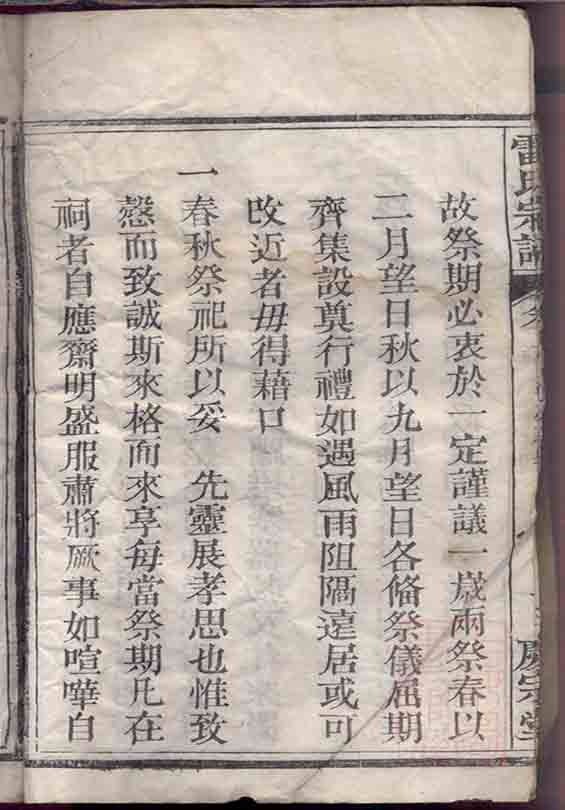 雷氏宗譜
慶宗堂
故祭期必衷於一定謹議一歲兩祭春以
二月望日秋以九月望日各偹祭儀屆期
齊集設奠行禮如遇風雨阻隔遠居或可
改近者毋得藉口
一春秋祭祀所以妥 先靈展孝思也惟致
慤而致誠斯來格而來享每當祭期凡在
祠者自應齋明盛服肅將厥事如喧嘩自